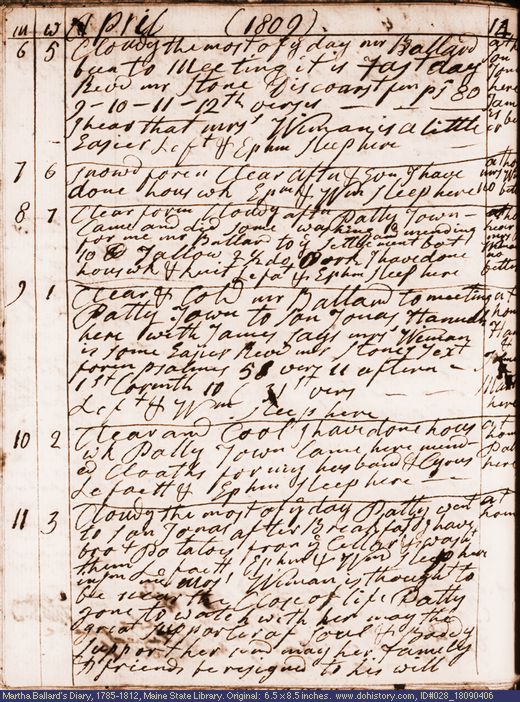 m w April (1809) 12
6 5 Cloudy the most of ye day mr Ballard at h
been to Meeting it is Fast day
Revd mr Stone Discoarst from ps 80
9-10-11-12th verses
I hear that mrs Wiman is a little
Easier Laft & Ephm Sleep here
7 6 Snowd foren Clear aftn & Evn I have at ho
done hous wk Ephm & Wm Sleep here
8 7 Clear foren Cloudy aftn Patty Town at h
Came and did Some washing and mending
for me mr Ballard to ye Settlement bot
10 lb Tallow 2 do Pork I have done
hous wk & knit Lafat & Ephm Sleep here better
9 1 Clear & Cold mr Ballard to meeting at
Patty Town to Son Jonas Hannah hom
here with James Says mrs Wiman
is Some Easier Revd mr Stones Text
foren psalms 58 vers 11 aftern
1st Corinth 10 31st vers
Laft & Wm Sleep here here
10 2 Clear and Cool I have done hous at
wk Patty Town Came here mend hom
ed Cloaths for my husband & Cyrus Pat
Lafaett & Ephm Sleep here here
11 3 Cloudy the most of ye day Patty went at
to Son Jonas after Breakfast I have hom
brot Potatoes from ye Cellar & washt
them Lafaett Ephm & Wm Sleep here
mrs Wiman is thought to
be near the Close of life Patty
gone to watch with her may the
great Supporter of Soul & Boddy
Support her and may her familly
& friends be resignd to his will
Martha Ballard's Diary, 1785-1812, Maine State Library. Original: 6.5 x 8.5 inches. www.dohistory.com, ID#028_18090406